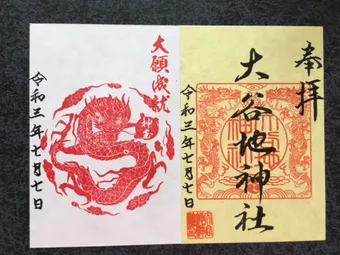 奉拝
大谷地神社
令和三年七月七日
大願成就
令和三年七月七日